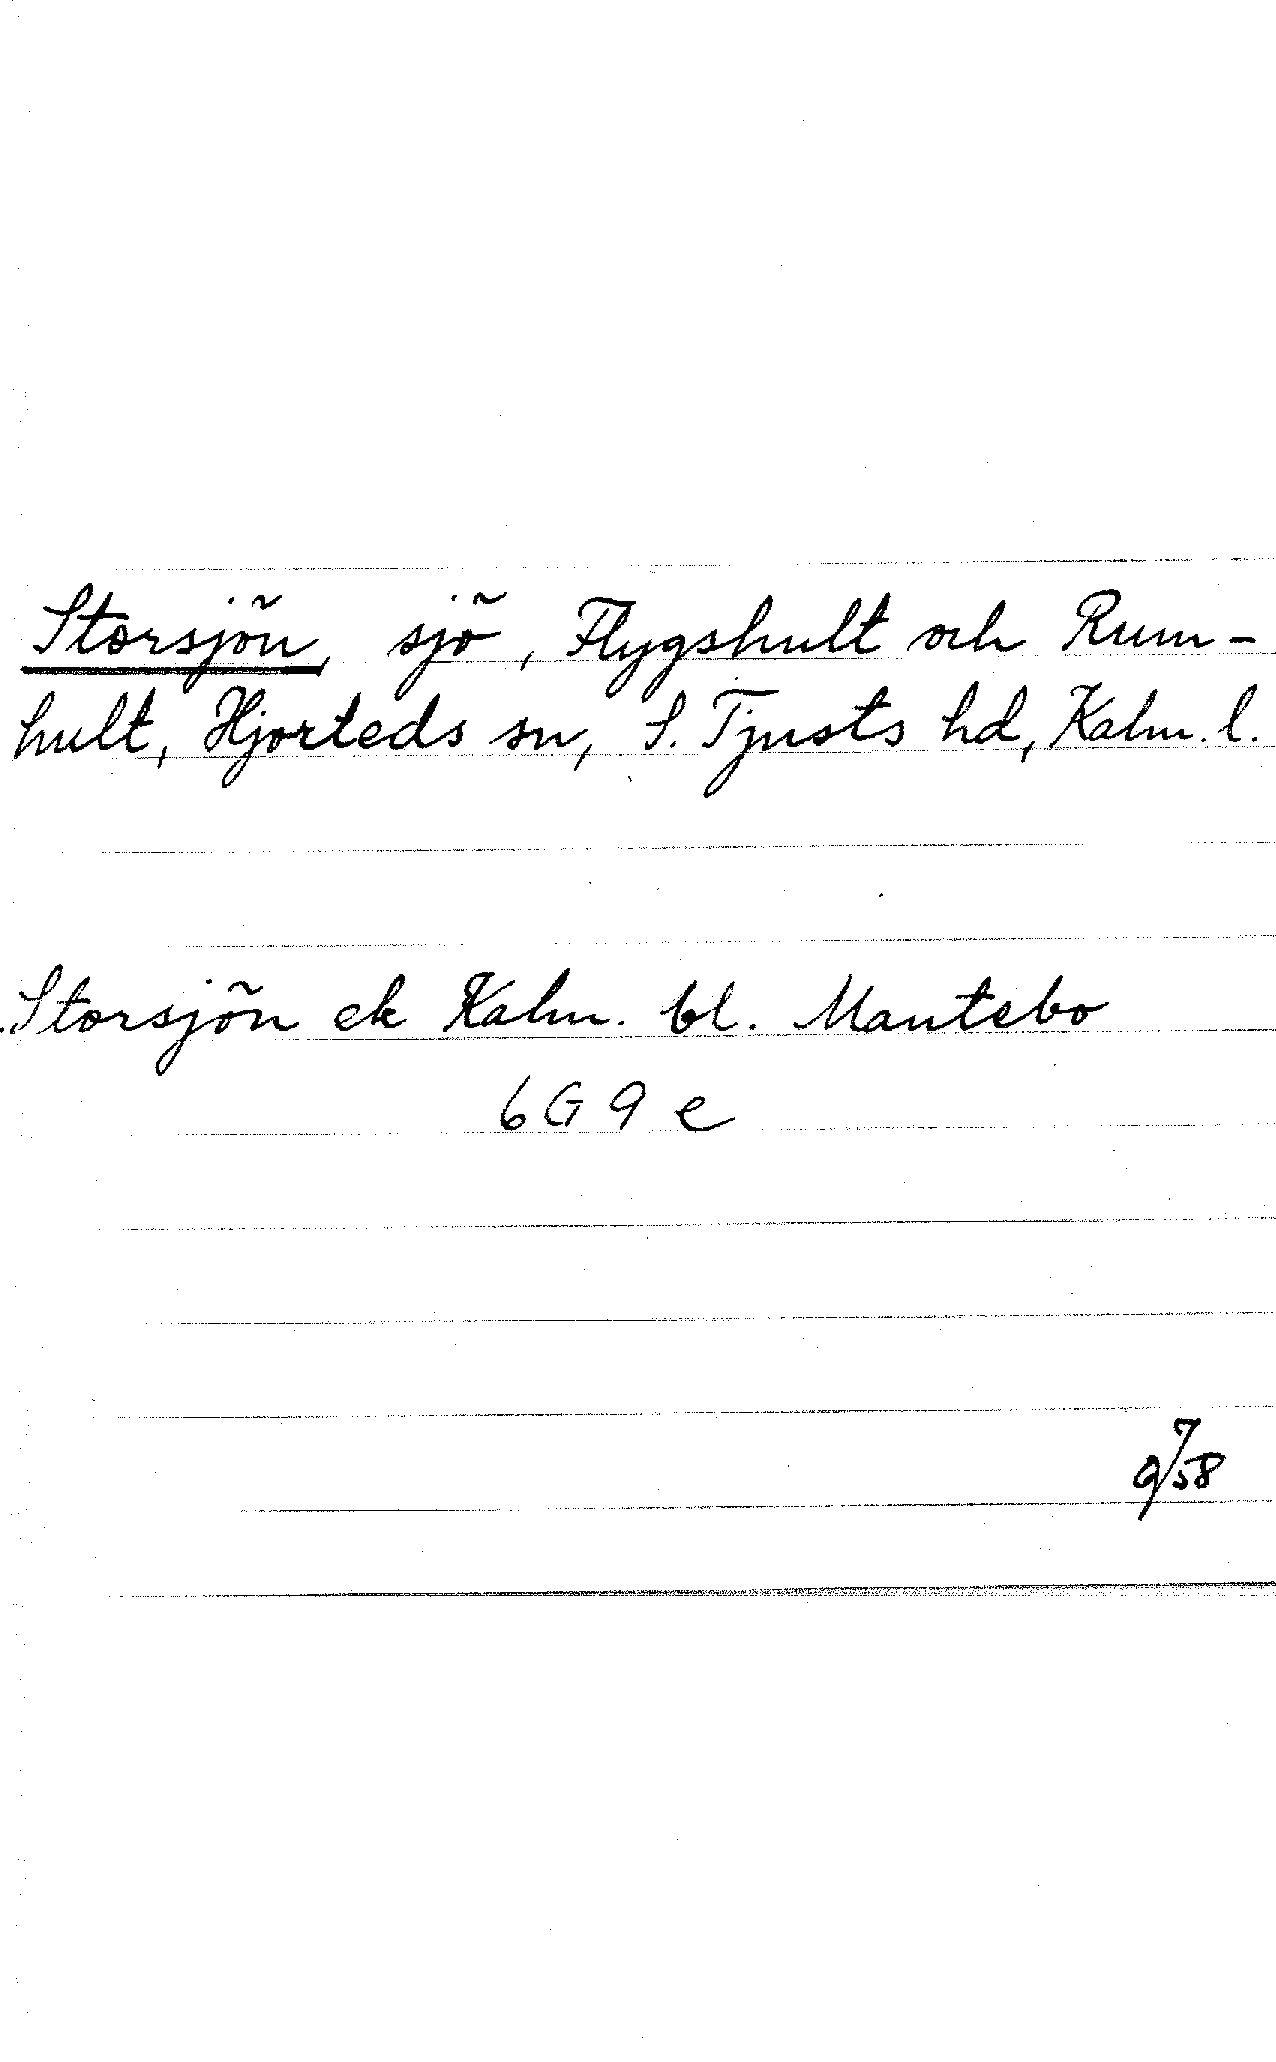 Storsjön, sjö, Flygshult och Rum-
hult, Hjorteds sn, S. Tjusts hd, Kalm. l.
Storsjön ek Kalm. bl. Mantebo
6G 9 e
9/7 58